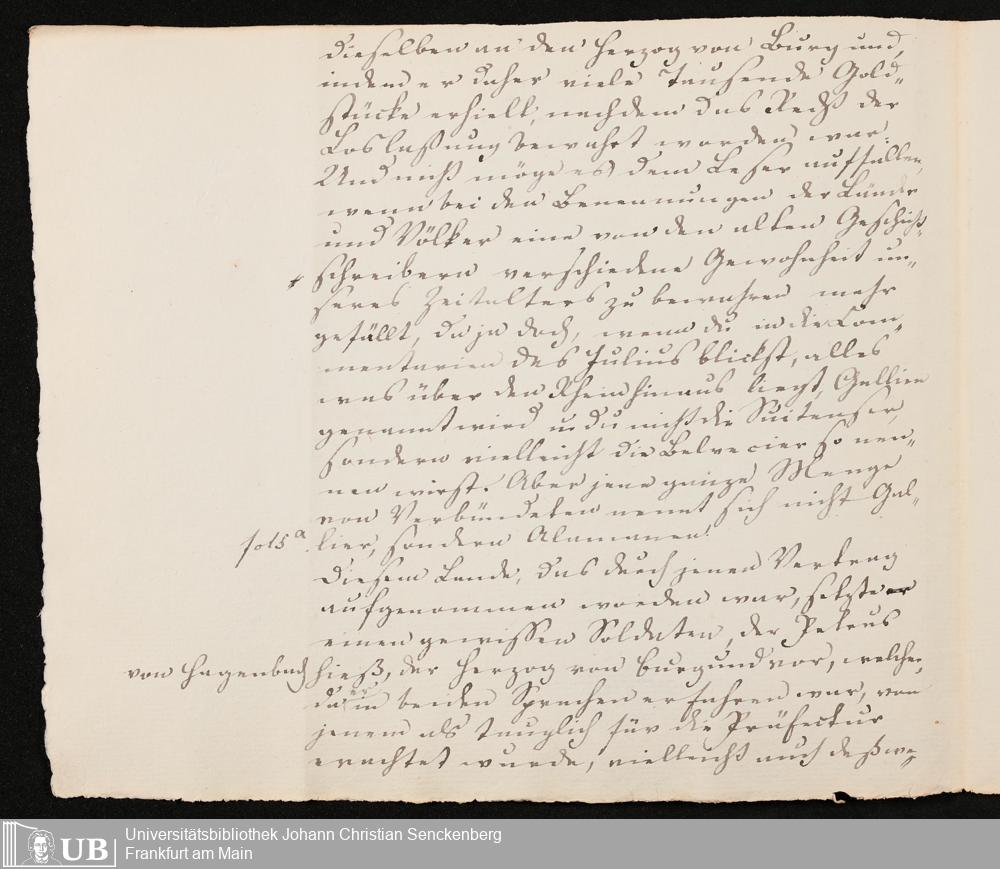 dieselben an den Herzog von Burgund,
indem er daher viele Tausende Gold-
stücke erhielt, nachdem das Recht der
Loslaßung bewahrt worden war.
Und nicht möge es dem Leser auffallen,
wenn bei den Benennungen der Länder
und Völker eine von den alten Geschicht-
schreibern verschiedene Gewohnheit un-
seres Zeitalters zu bewahren mehr
gefällt, da ja doch, wenn du in die Com-
mentarien des Julius blickst, alles
was über den Rhein hinaus liegt, Gallien
genannt wird u. du nicht die Suitenser,
sondern vielleicht die Belvecier so nen-
nen wirst. Aber jene ganze Menge
von Verbündeten nennt sich nicht Gal-
fo 15 a. lier, sondern Alamanen.
Diesem Lande, das durch jenen Vertrag
aufgenommen worden war, setzte er
einen gewissen Soldaten, der Petrus
von Hagenbach hieß, der Herzog von Burgund vor, welcher,
da er in beiden Sprachen erfahren war, von
jenem als tauglich für die Präfectur
erachtet wurde, vielleicht auch deßwe-
UB
Universitätsbibliothek Johann Christian Senckenberg
Frankfurt am Main